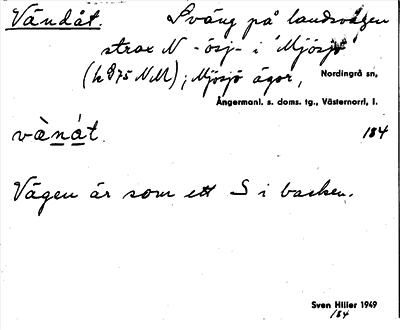 Vändåt. Sväng på landsvägen
strax N -ösj- i Mjösjö
(h 875 NM); Mjösjö ägor, Nordingrå sn,
Ångermanl. s. doms. tg., Västernorrl. l.
vànát. 184
Vägen är som ett S i backen.
Sven Hiller 1949
184